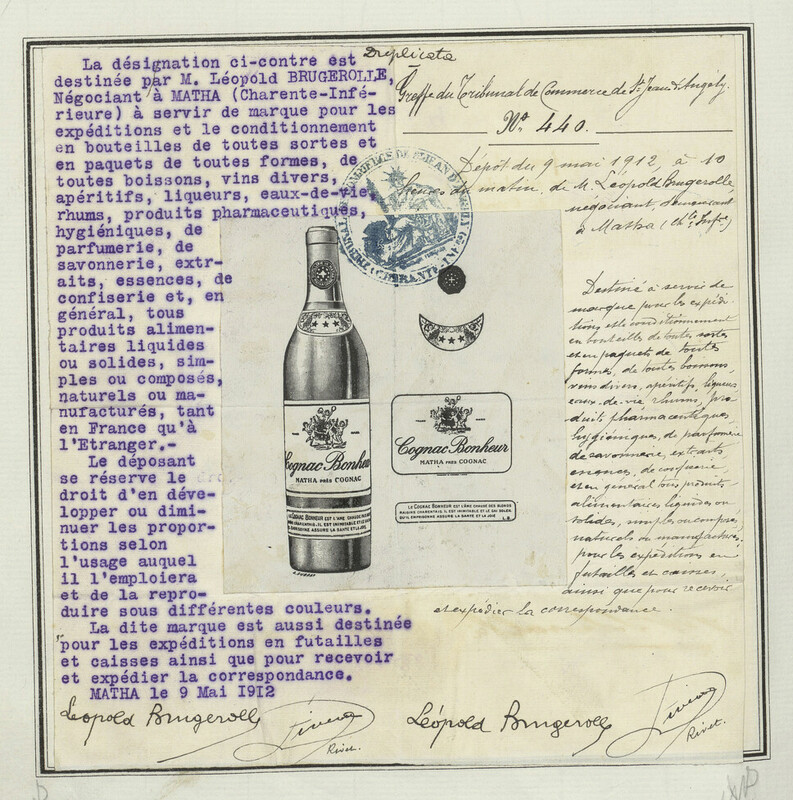 La désignation ci-contre est
destinée par M. Léopold BRUGEROLLE,
Négociant à MATHA (Charente-Infé-
rieure) à servir de marque pour les
expéditions et le conditionnement
en bouteilles de toutes sortes et
en paquets de toutes formes, de
toutes boissons, vins divers,
apéritifs, liqueurs, eaux-de-vie,
rhums, produits pharmaceutiques,
hygiéniques, de
parfumerie, de
savonnerie, extr-
aits, essences, de
confiserie et, en
général, tous
produits alimen-
taires liquides
ou solides, sim-
ples ou composés,
naturels ou ma-
nufacturés, tant
en France qu'à
l'Etranger.-
Le déposant
se réserve le
droit d'en déve-
lopper ou dimi-
nuer les propor-
tions selon
l'usage auquel
il l'emploiera
et de la repro-
duire sous différentes couleurs.
La dite marque est aussi destinée
pour les expéditions en futailles
et caisses ainsi que pour recevoir
et expédier la correspondance.
MATHA le 9 Mai 1912
Léopold Brugerolle
Rivet.
Duplicata
Greffe du Tribunal de Commerce de St Jean d'Angély.
No 440.
Dépôt du 9 mai 1912, à 10
heures du matin, de M. Léopold Brugerolle,
négociant, demeurant
à Matha (Ch. Infre)
Destiné à servir de
marque pour les expédi-
tions et le conditionnement
en bouteilles de toutes sortes
et en paquets de toutes
formes, de toutes boissons,
vins divers, apéritifs, liqueurs
eaux-de-vie, rhums, pro-
duits pharmaceutiques
hygiéniques, de parfumerie
de savonnerie, extraits
essences, de confiserie
et en général tous produits
alimentaires liquides ou
solides, simples ou composés
naturels ou manufacturés,
pour les expéditions en
futailles et caisses,
ainsi que pour recevoir
et expédier la correspondance.
Léopold Brugerolle
Rivet.
Cognac Bonheur
MATHA PRÈS COGNAC
Cognac Bonheur
MATHA PRÈS COGNAC
LE COGNAC BONHEUR EST L'ÂME CHAUDE DES BLONDS
RAISINS CHARENTAIS, IL EST INIMITABLE ET LE GAI SOLEIL
QU'IL EMPRISONNE ASSURE LA SANTÉ ET LA JOIE
L B